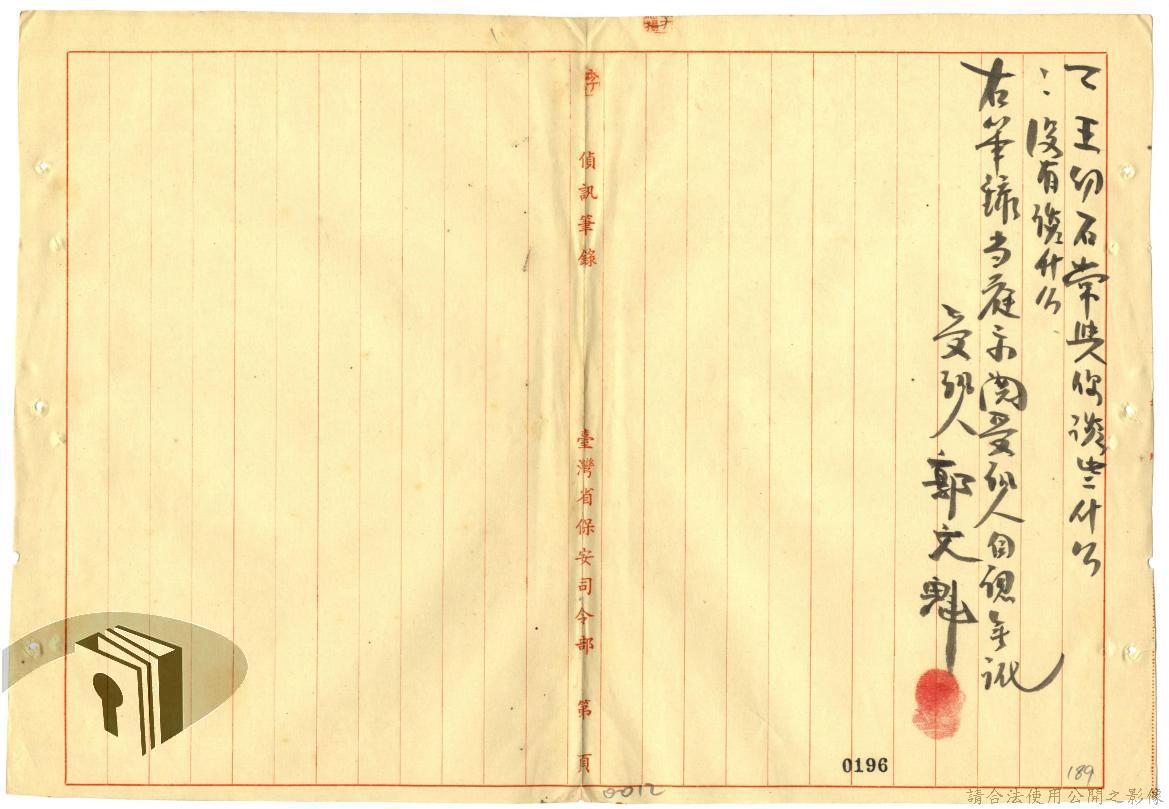 王幼石常與你談些什么
: 沒有談什么
右筆録当庭示閲受訊人自認無訛
受訊人 郭文魁
李
偵訊筆錄
臺灣省保安司令部
第 頁
0196
189
0012
請合法使用公開之影像